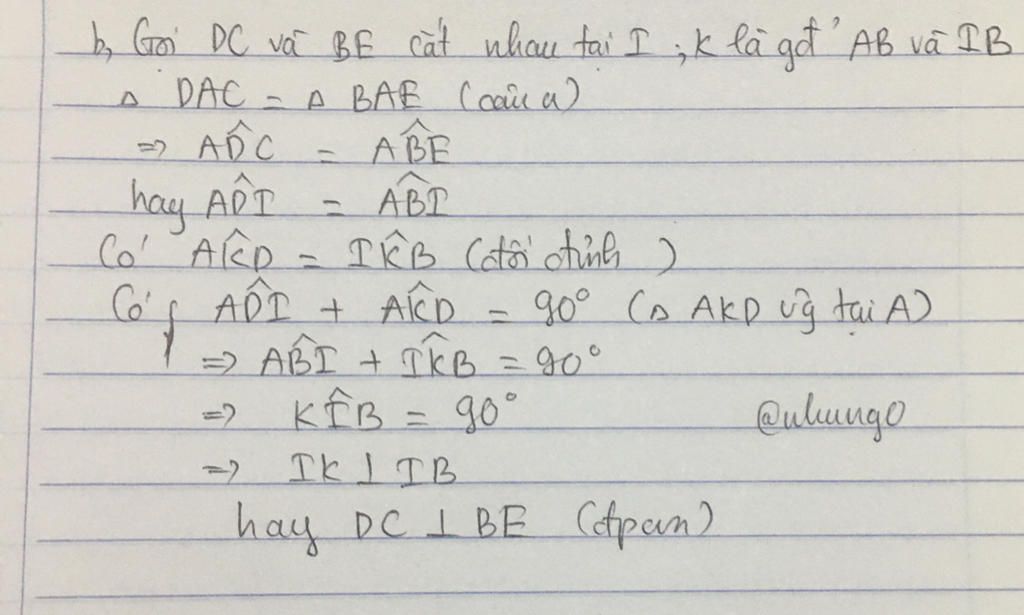 b, Gọi DC và BE cắt nhau tại I ; K là gđ' AB và IB
Δ DAC = Δ BAE (câu a)
=> AD̂C = AB̂E
hay AD̂I = AB̂I
Có AK̂D = IK̂B (đối đỉnh)
Có AD̂I + AK̂D = 90° (Δ AKD vg̃ tại A)
=> AB̂I + IK̂B = 90°
=> KÎB = 90°
@nhungo
=> IK ⊥ IB
hay DC ⊥ BE (đpcm)